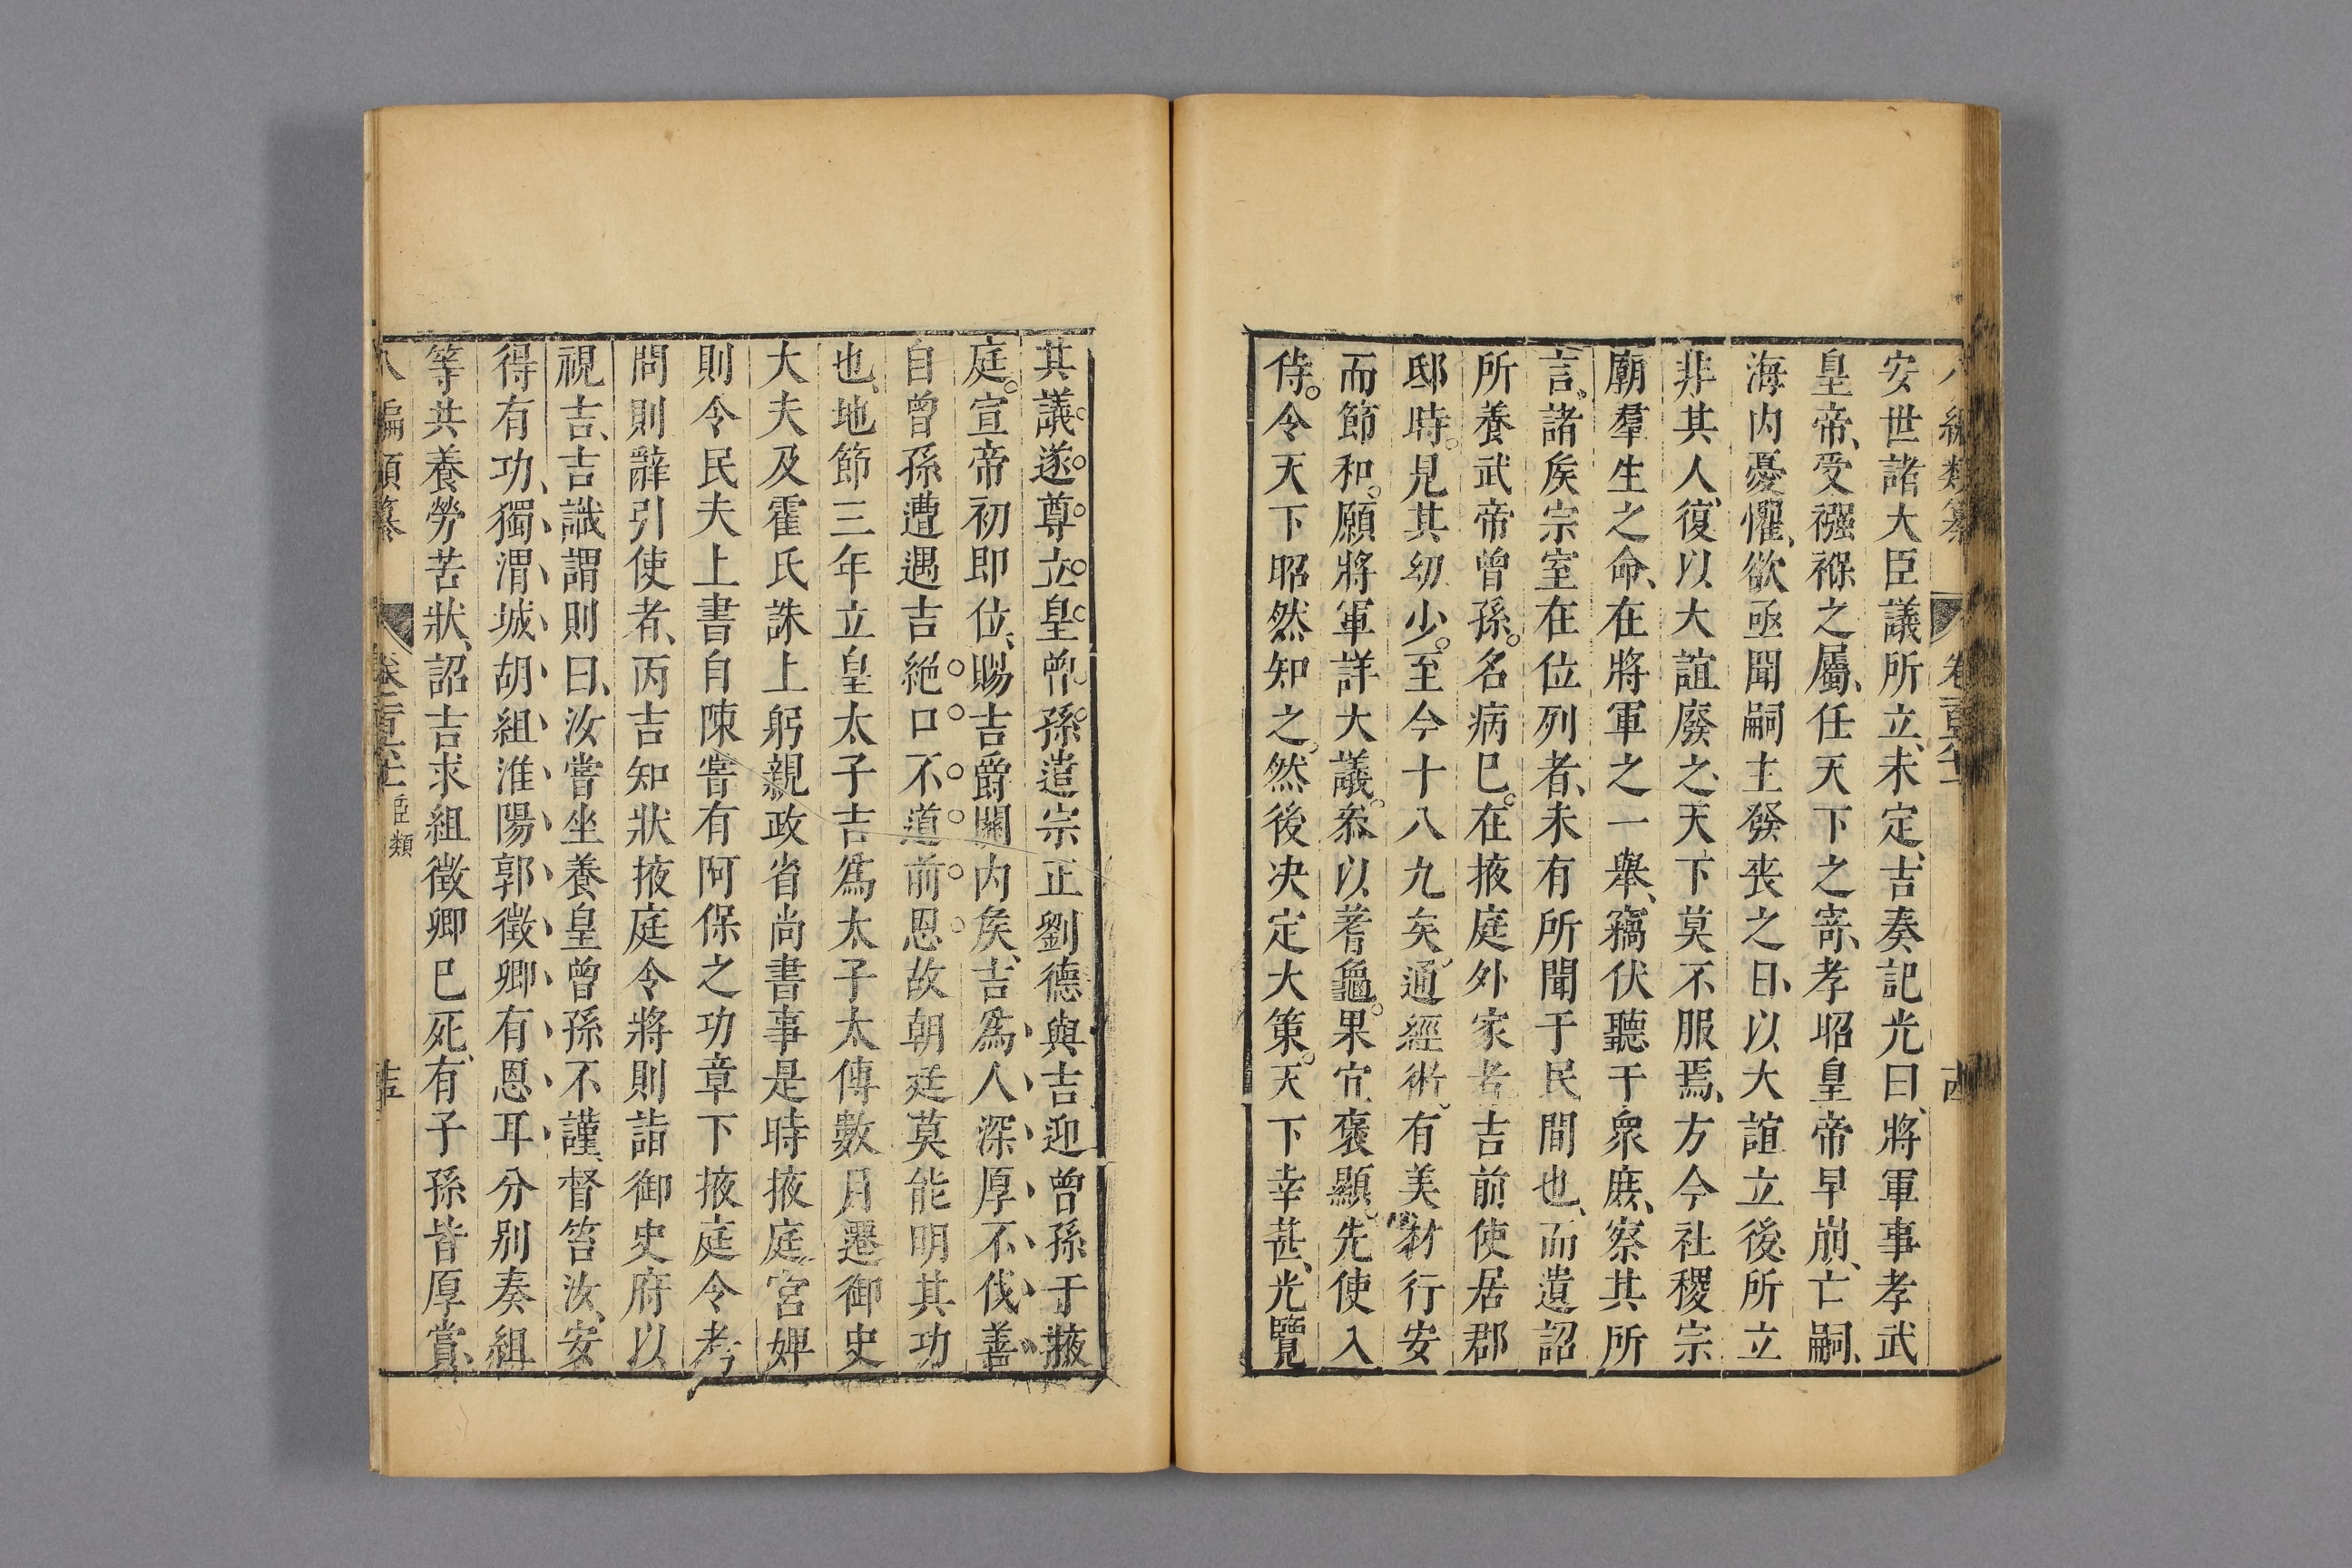 編類纂 卷一百六十
安世諸大臣議所立、未定、吉奏記光曰、將軍事孝武
皇帝、受襁褓之屬、任天下之寄、孝昭皇帝早崩、亡嗣、
海内憂懼、欲亟聞嗣主發喪之日、以大誼立後、所立
非其人、復以大誼廢之、天下莫不服焉、方今社稷宗
廟羣生之命、在將軍之一舉、竊伏聽于衆庶、察其所
言、諸矦宗室在位列者、未有所聞于民間也、而遺詔
所養武帝曾孫。名病已。在掖庭外家者。吉前使居郡
邸時。見其幼少。至今十八九矣。通經術。有美材行安
而節和。願將軍詳大議。叅以蓍龜。果宜褒顯。先使入
侍。令天下昭然知之。然後决定大策。天下幸甚、光覽
其議。遂尊立皇曾孫。遣宗正劉德與吉迎曾孫于掖
庭。宣帝初即位、賜吉爵關内矦、吉爲人深厚不伐善
自曾孫遭遇吉絶口不道前恩故朝廷莫能明其功
也、地節三年立皇太子吉爲太子太傅數月遷御史
大夫及霍氏誅上躬親政省尚書事是時掖庭宫婢
則令民夫上書自陳嘗有阿保之功章下掖庭令考
問則辭引使者、丙吉知狀掖庭令將則詣御史府以
視吉、吉識謂則曰、汝嘗坐養皇曾孫不謹、督笞汝、安
得有功、獨渭城胡組淮陽郭徵卿有恩耳分别奏組
等共養勞苦狀、詔吉求組徵卿已死、有子孫皆厚賞、
編類纂 卷一百六十 類